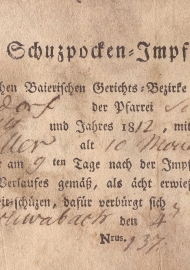 Schuzpocken-Impf
chen Baierischen Gerichts-Bezirke
dorf der Pfarrei
und Jahres 1812, mit
ller alt 10 Mon
am 9 ten Tage nach der Impf
Verlaufes gemäß, als ächt erwie
eit schüzen, dafür verbürgt sich
Schwabach den 4
Nrus. 137.